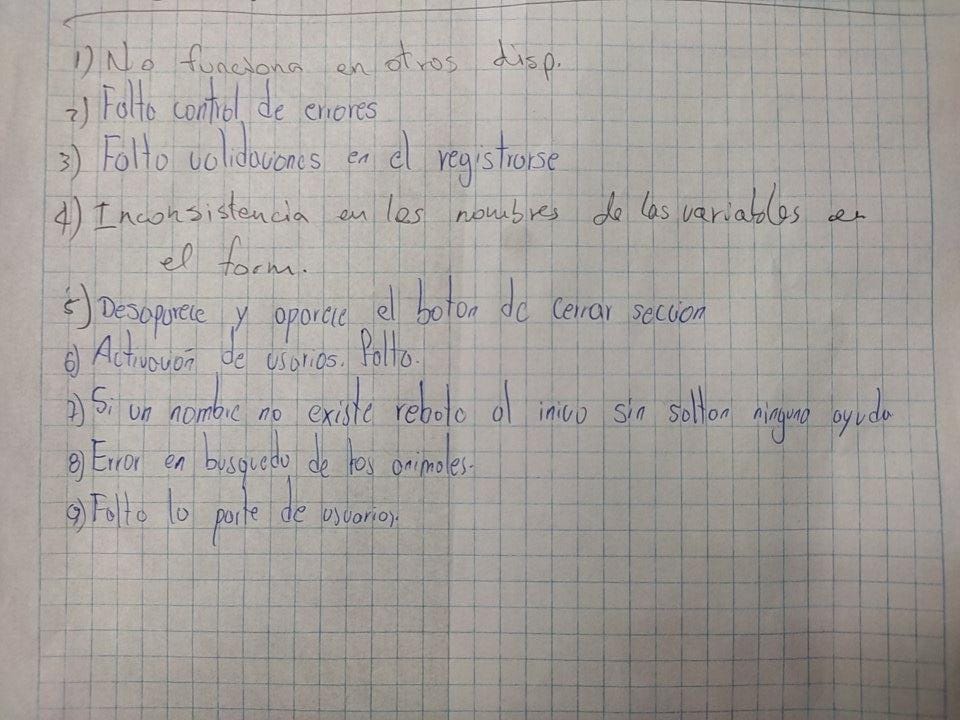 1) No funciona en otros disp.
2) Falta control de errores
3) Falta validaciones en el registrarse
4) Inconsistencia en los nombres de las variables en
el form.
5) Desaparece y aparece el boton de cerrar seccion
6) Activación de usarios. Falta.
7) Si un nombre no existe rebota al inicio sin saltan ninguna ayuda
8) Error en busqueda de los animales.
9) Falta la parte de usuarios.